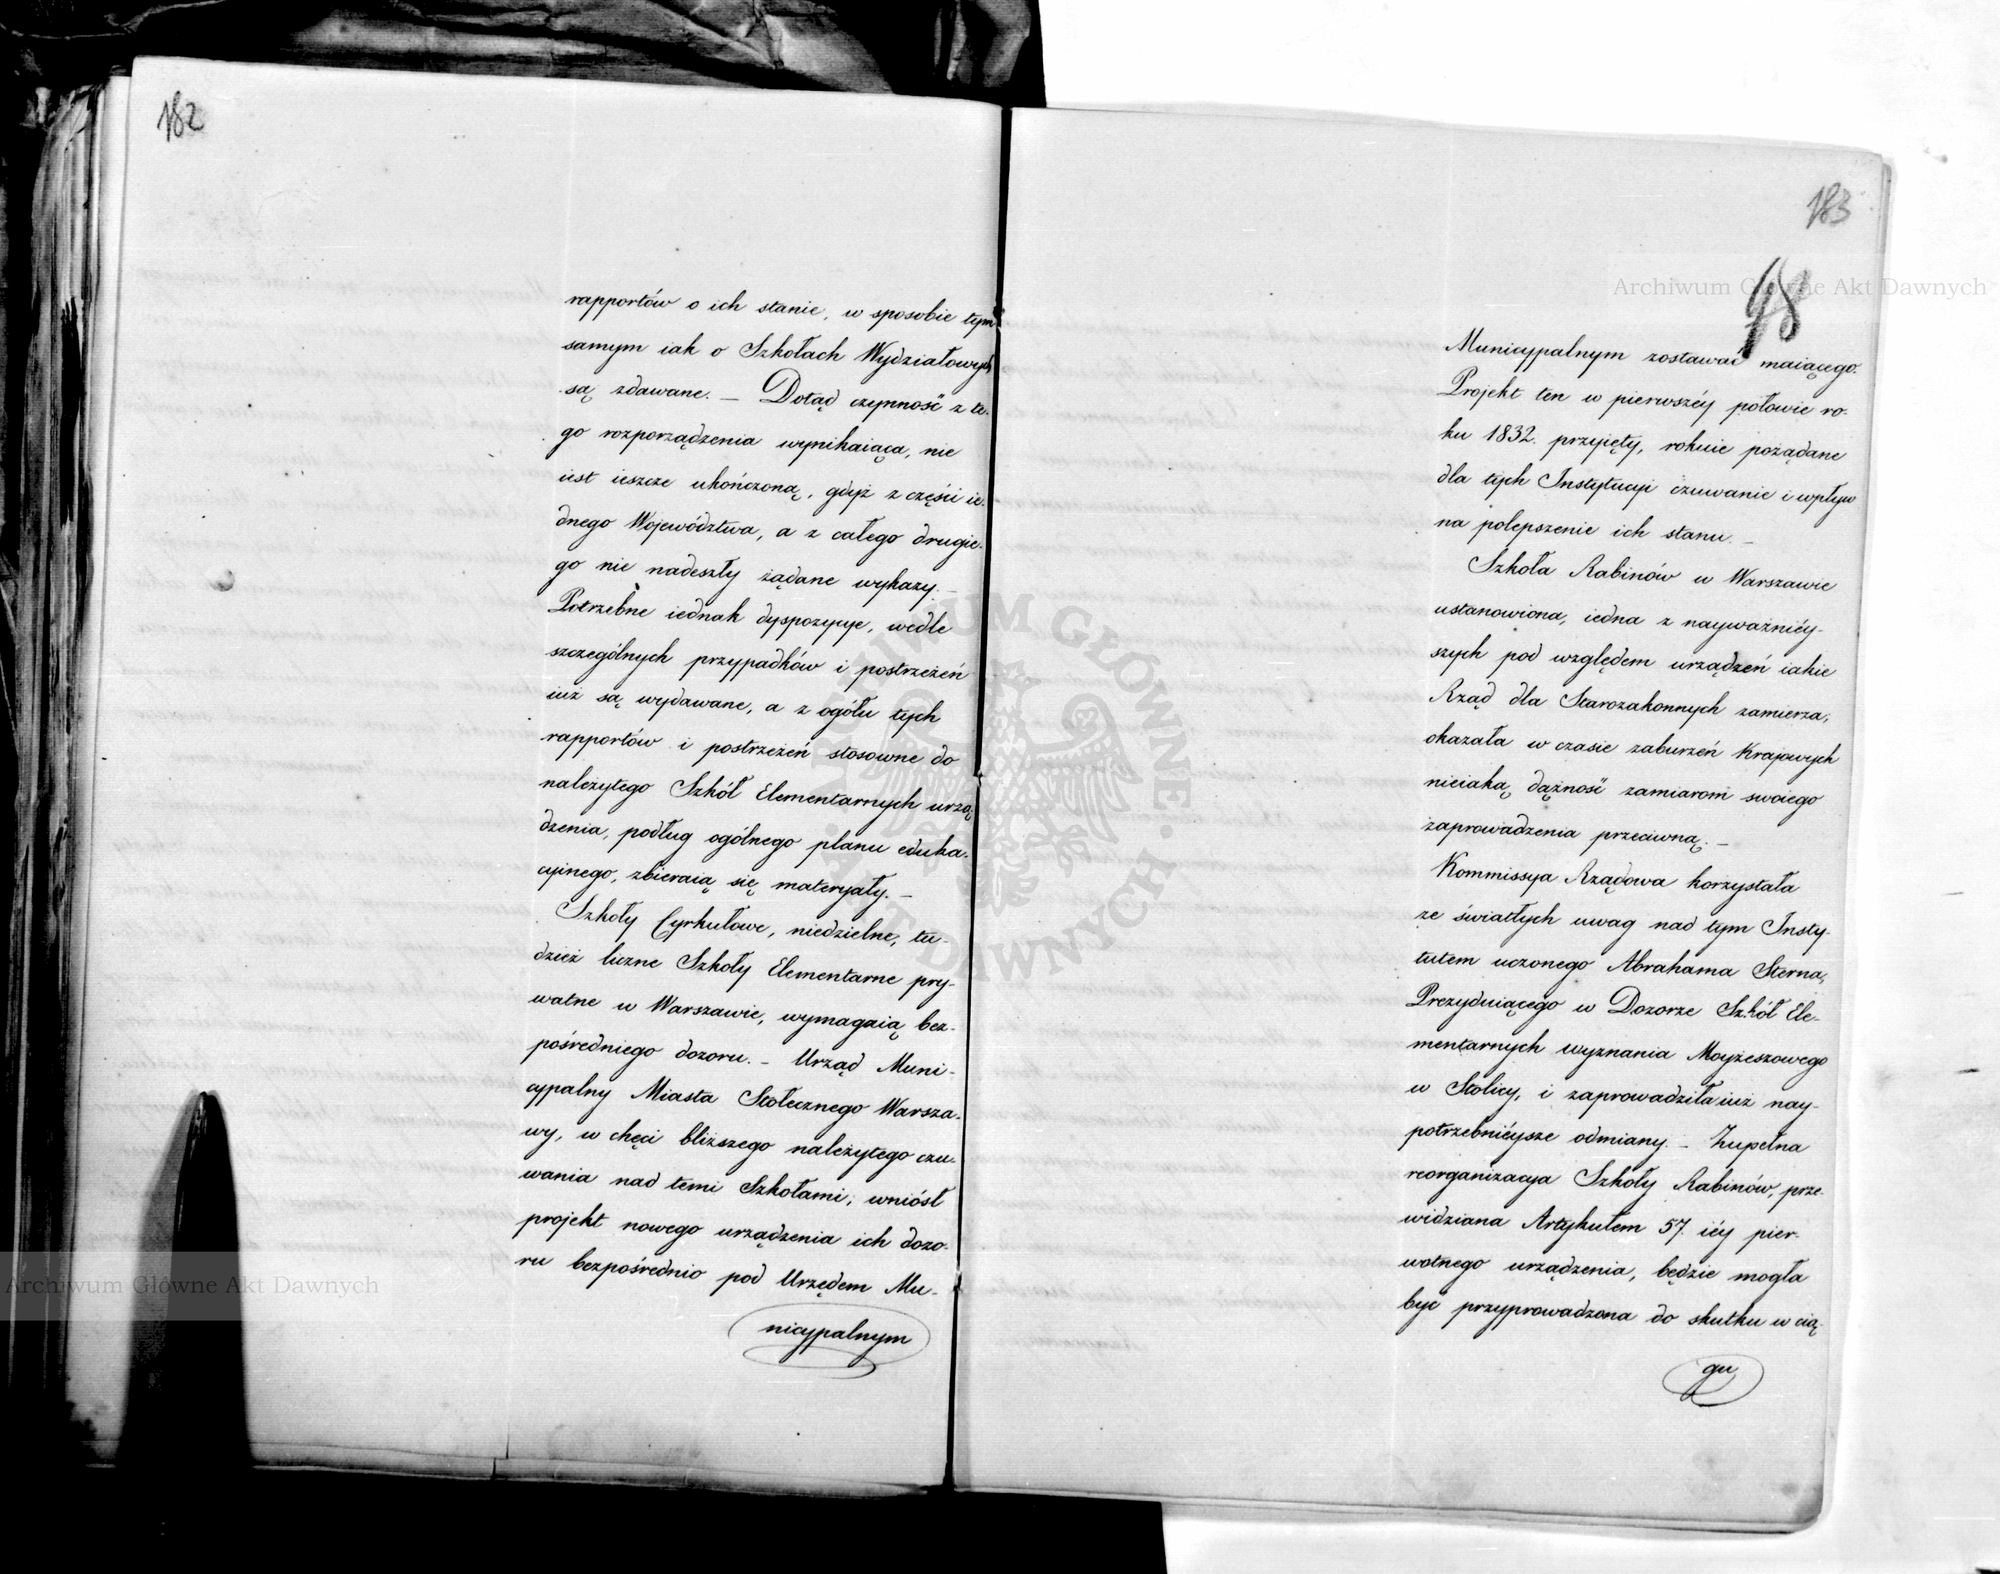 182
rapportów o ich stanie, w sposobie tym
samym iak o Szkołach Wydziałowych
są zdawane. — Dotąd czynność z te-
go rozporządzenia wynikaiąca, nie
iest ieszcze ukończoną, gdyż z części ie-
dnego Województwa, a z całego drugie-
go nie nadeszły żądane wykazy. —
Potrzebne iednak dyspozycye, wedle
szczególnych przypadków i postrzeżeń
iuż są wydawane, a z ogółu tych
rapportów i postrzeżeń stosowne do
należytego Szkół Elementarnych urzą-
dzenia, podług ogólnego planu eduka-
cyinego, zbieraią się materyały. —
Szkoły Cyrkułowe, niedzielne, tu-
dzież liczne Szkoły Elementarne pry-
watne w Warszawie, wymagaią bez-
pośredniego dozoru. — Urząd Muni-
cypalny Miasta Stołecznego Warsza-
wy, w chęci bliższego należytego czu-
wania nad temi Szkołami, wniósł
projekt nowego urządzenia ich dozo-
ru bezpośrednio pod Urzędem Mu-
nicypalnym
183
98
Municypalnym zostawać maiącego.
Projekt ten w pierwszéy połowie ro-
ku 1832. przyięty, rokuie pożądane
dla tych Instytucyi czuwanie i wpływ
na polepszenie ich stanu. —
Szkoła Rabinów w Warszawie
ustanowiona, iedna z nayważniéy-
szych pod względem urządzeń iakie
Rząd dla Starozakonnych zamierza,
okazała w czasie zaburzeń Krajowych
nieiaką dążność zamiarom swoiego
zaprowadzenia przeciwną. —
Kommissya Rządowa korzystała
ze światłych uwag nad tym Insty-
tutem uczonego Abrahama Sterna,
Prezyduiącego w Dozorze Szkół Ele-
mentarnych wyznania Moyżeszowego
w Stolicy, i zaprowadziła iuż nay-
potrzebniéysze odmiany. — Zupełna
reorganizacya Szkoły Rabinów, prze-
widziana Artykułem 57. iéy pier-
wotnego urządzenia, będzie mogła
być przyprowadzona do skutku w cią-
gu
Archiwum Główne Akt Dawnych
Archiwum Główne Akt Dawnych
ARCHIWUM GŁÓWNE AKT DAWNYCH